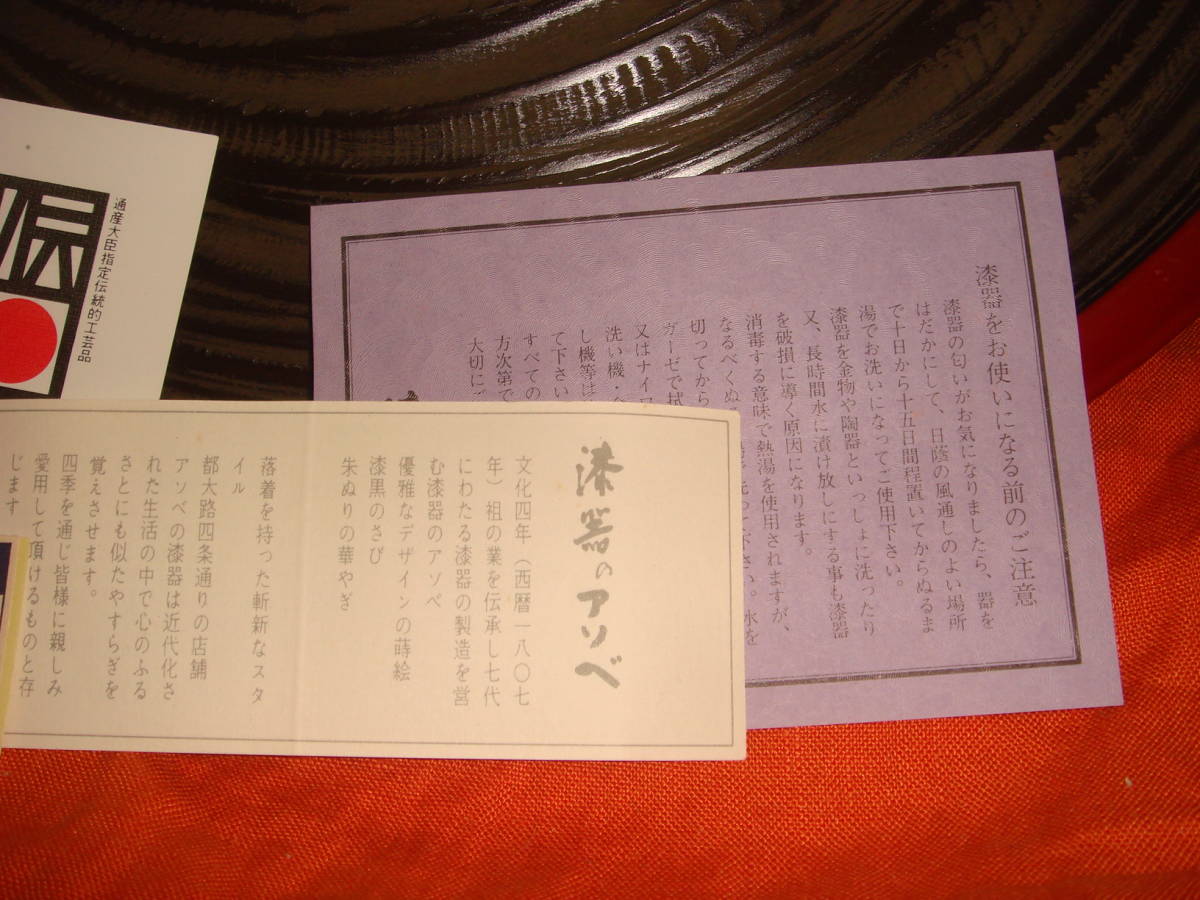 漆器をお使いになる前のご注意
漆器の匂いがお気になりましたら、器を
はだかにして、日蔭の風通しのよい場所
で十日から十五日間程置いてからぬるま
湯でお洗いになってご使用下さい。
漆器を金物や陶器といっしょに洗ったり
又、長時間水に漬け放しにする事も漆器
を破損に導く原因になります。
消毒する意味で熱湯を使用されますが、
なるべくぬ
洗って下さい。水を
切ってから
ガーゼで拭
又はナイロ
洗い機・
し機等は
て下さい
すべての
方次第で
大切にご
漆器のアソベ
文化四年（西暦一八〇七
年）祖の業を伝承し七代
にわたる漆器の製造を営
む漆器のアソベ
優雅なデザインの蒔絵
漆黒のさび
朱ぬりの華やぎ
落着を持った斬新なスタ
イル
都大路四条通りの店舗
アソベの漆器は近代化さ
れた生活の中で心のふる
さとにも似たやすらぎを
覚えさせます。
四季を通じ皆様に親しみ
愛用して頂けるものと存
じます
通産大臣指定伝統的工芸品
伝